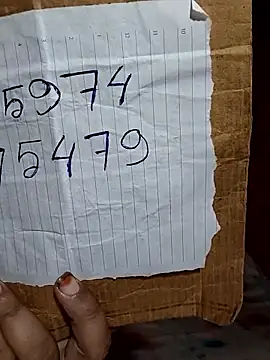 5974
75479